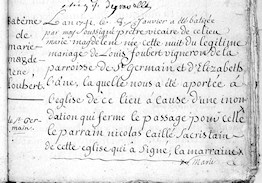 Batême
de
marie
magde
lene
Joubert
st Ger
main.
L'an 1741 le 8e Janvier a été batisée
par moy Soussigné prêtre vicaire de ce lieu
marie magdelene née cette nuit du legitime
mariage de Louis Joubert vigneron de la
parroisse de St Germain et d'Elizabeth
bâne, la quelle nous a été aportée a
l'eglise de ce lieu à cause d'une inon
dation qui ferme le passage pour celle
le parrain nicolas Caillé Sacristain
de cette eglise qui a Signé, la marraine
Marie